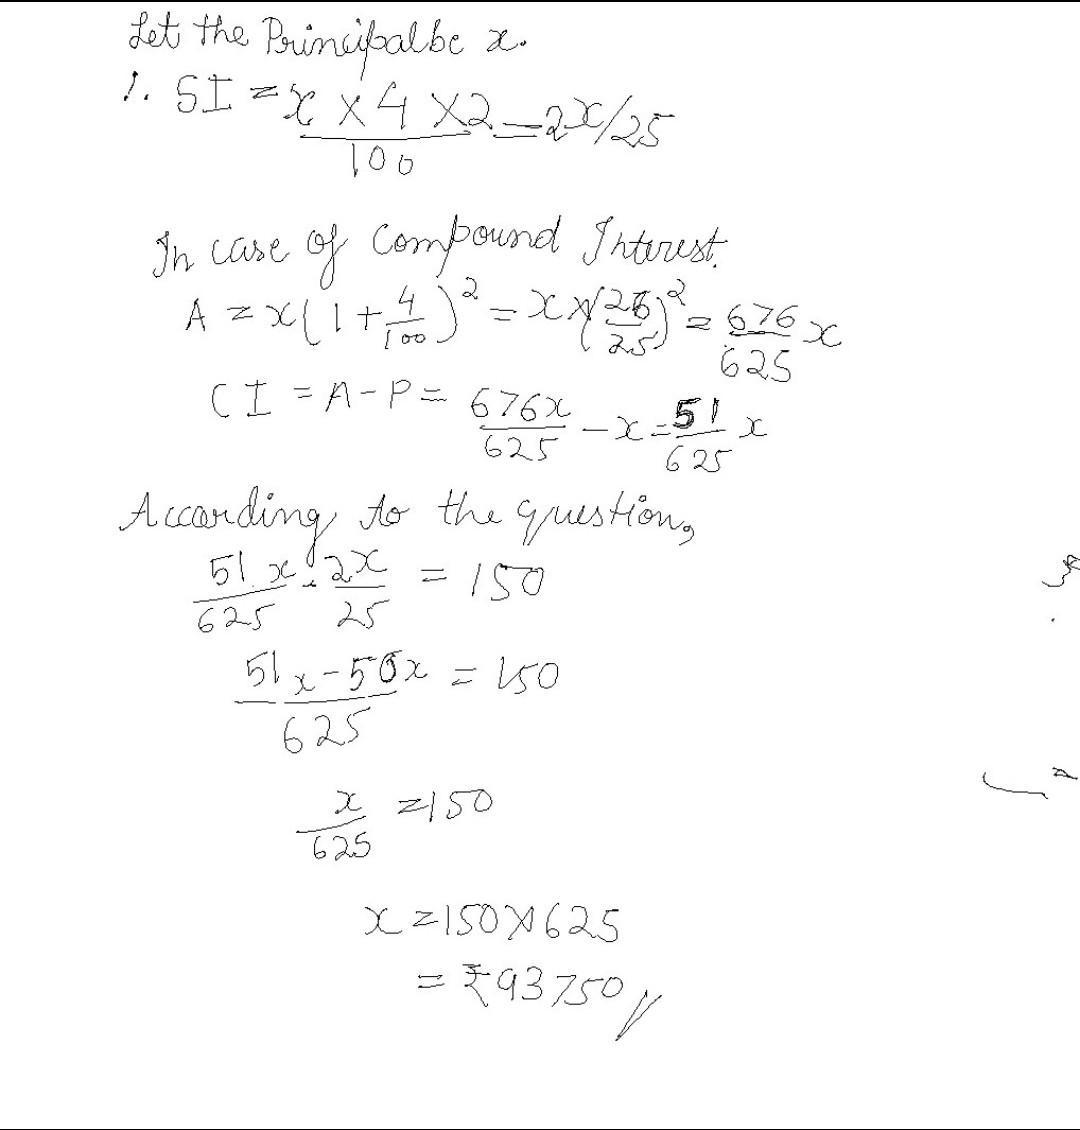 Let the Principal be x.
∴ SI = x × 4 × 2/100 = 2x/25
In case of Compound Interest.
A = x(1+4/100)² = x × (26/25)² = 676/625 x
CI = A-P = 676x/625 - x = 51/625 x
According to the question,
51x/625 - 2x/25 = 150
51x-50x/625 = 150
x/625 = 150
x = 150×625
= ₹93750//